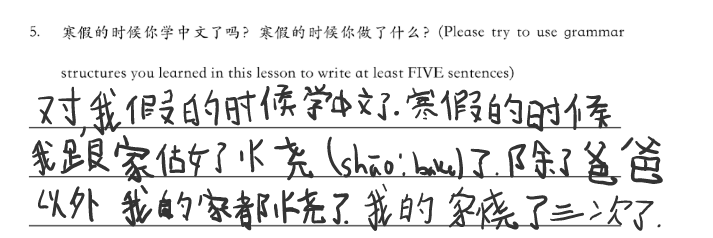 5. 寒假的时候你学中文了吗？寒假的时候你做了什么？(Please try to use grammar
structures you learned in this lesson to write at least FIVE sentences)
对,我假的时候学中文了.寒假的时候
我跟家估好了火尧(shāo: bake)了.除了爸爸
以外 我的家都烧了.我的 家烧了三次了.